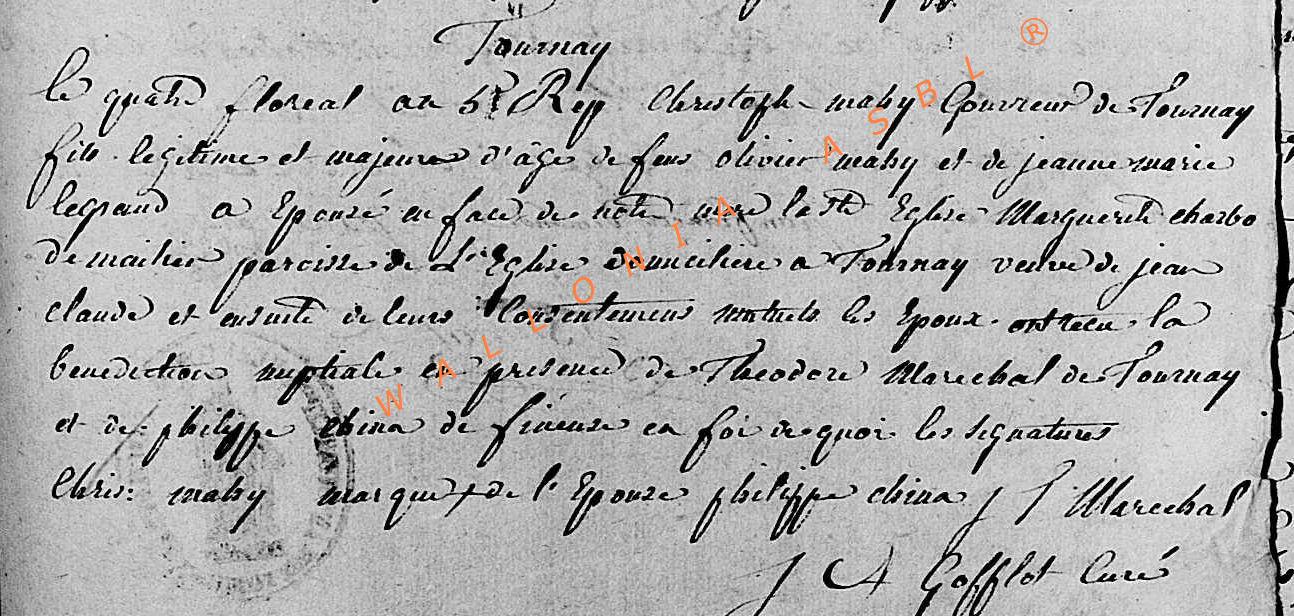 Tournay
le quatre floreal an 5e Rep Christoph mahy Couvreur de Tournay
fils legitime et majeure d'âge de feus olivier mahy et de jeanne marie
legrand a Epousé en face de notre mere la Ste Eglise Marguerite charbo
de maihen paroisse de L'Eglise domiciliere a Tournay veuve de jean
claude et ensuite de leurs Consentemens mutuels les Epoux ont recu la
benediction nuptiale en presence de Theodore Marechal de Tournay
et de philippe china de fineuse en foi de quoi les signatures
Chris: mahy marque + de l'Epouse philippe china J J Marechal
J A Gofflot Curé
WALLONIA ASBL ®